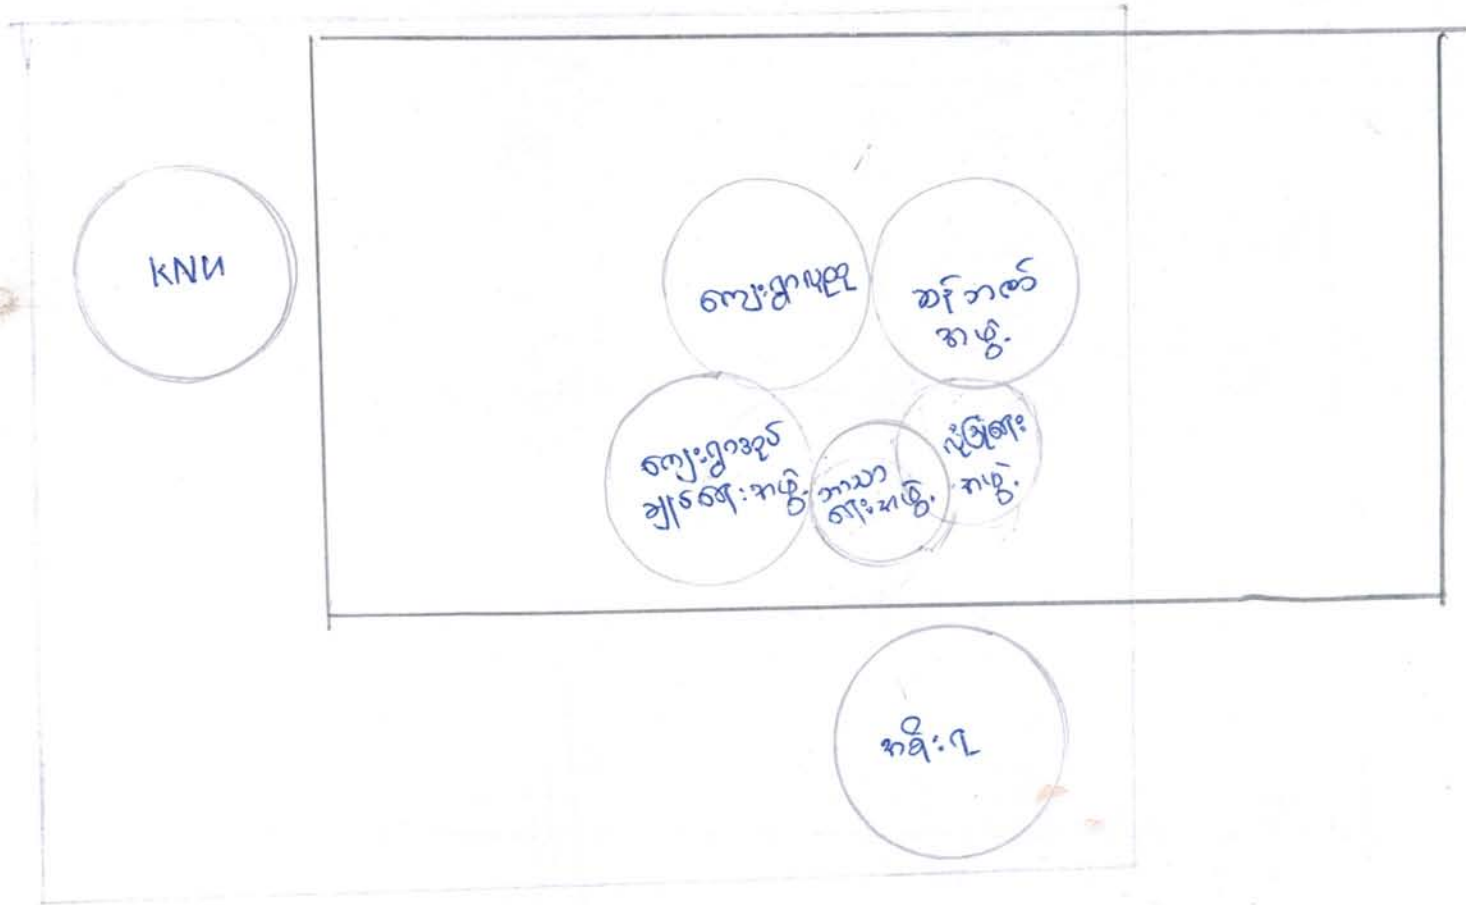 KNU
ကျေးရွာလူထု
ဆန်ဘဏ်
အဖွဲ့
ကျေးရွာအုပ်
ချုပ်ရေးအဖွဲ့
ဘာသာ
ရေးအဖွဲ့
လုံခြုံရေး
အဖွဲ့
အစိုးရ